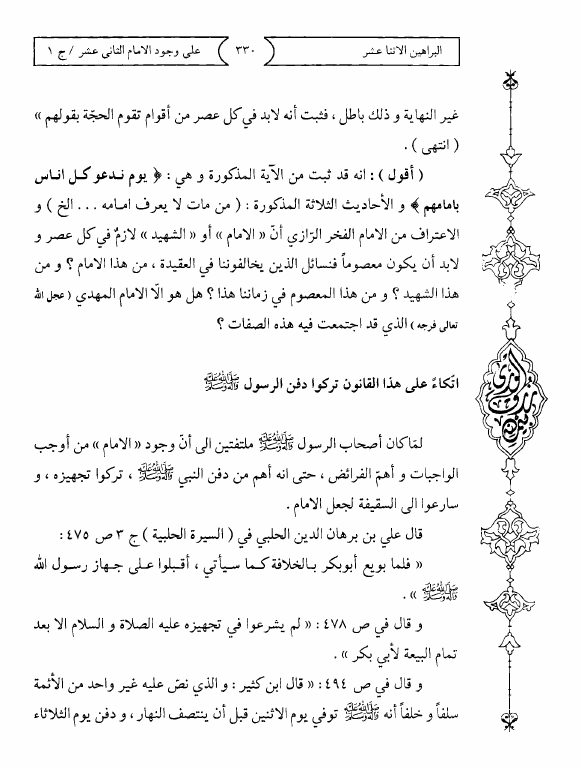 البراهين الاثنا عشر
٣٣٠
على وجود الامام الثاني عشر / ج ١
غير النهاية و ذلك باطل ، فثبت أنه لابد في كل عصر من أقوام تقوم الحجّة بقولهم »
( انتهى ) .
( أقول ) : انه قد ثبت من الآية المذكورة و هي : ﴿ يوم نـدعو كـل انـاس
بامامهم ﴾ و الأحاديث الثلاثة المذكورة : ( من مات لا يعرف امامه . . . الخ ) و
الاعتراف من الامام الفخر الرّازي أنّ « الامام » أو « الشهيد » لازمٌ في كل عصر و
لابد أن يكون معصوماً فنسائل الذين يخالفوننا في العقيدة ، من هذا الامام ؟ و من
هذا الشهيد ؟ و من هذا المعصوم في زماننا هذا ؟ هل هو الّا الامام المهدي ( عجل الله
تعالى فرجه ) الذي قد اجتمعت فيه هذه الصفات ؟
اتّكاءً على هذا القانون تركوا دفن الرسول ﷺ
لمّا كان أصحاب الرسول ﷺ ملتفتين الى أنّ وجود « الامام » من أوجب
الواجبات و أهمّ الفرائض ، حتى انه أهم من دفن النبي ﷺ ، تركوا تجهيزه ، و
سارعوا الى السقيفة لجعل الامام .
قال علي بن برهان الدين الحلبي في ( السيرة الحلبية ) ج ٣ ص ٤٧٥ :
« فلما بويع أبوبكر بـالخلافة كـما سـيأتي ، أقـبلوا عـلى جهاز رسـول الله
ﷺ » .
و قال في ص ٤٧٨ : « لم يشرعوا في تجهيزه عليه الصلاة و السلام الا بعد
تمام البيعة لأبي بكر » .
و قال في ص ٤٩٤ : « قال ابن كثير : و الذي نصّ عليه غير واحد من الأئمة
سلفاً و خلفاً أنه ﷺ توفي يوم الاثنين قبل أن ينتصف النهار ، و دفن يوم الثلاثاء